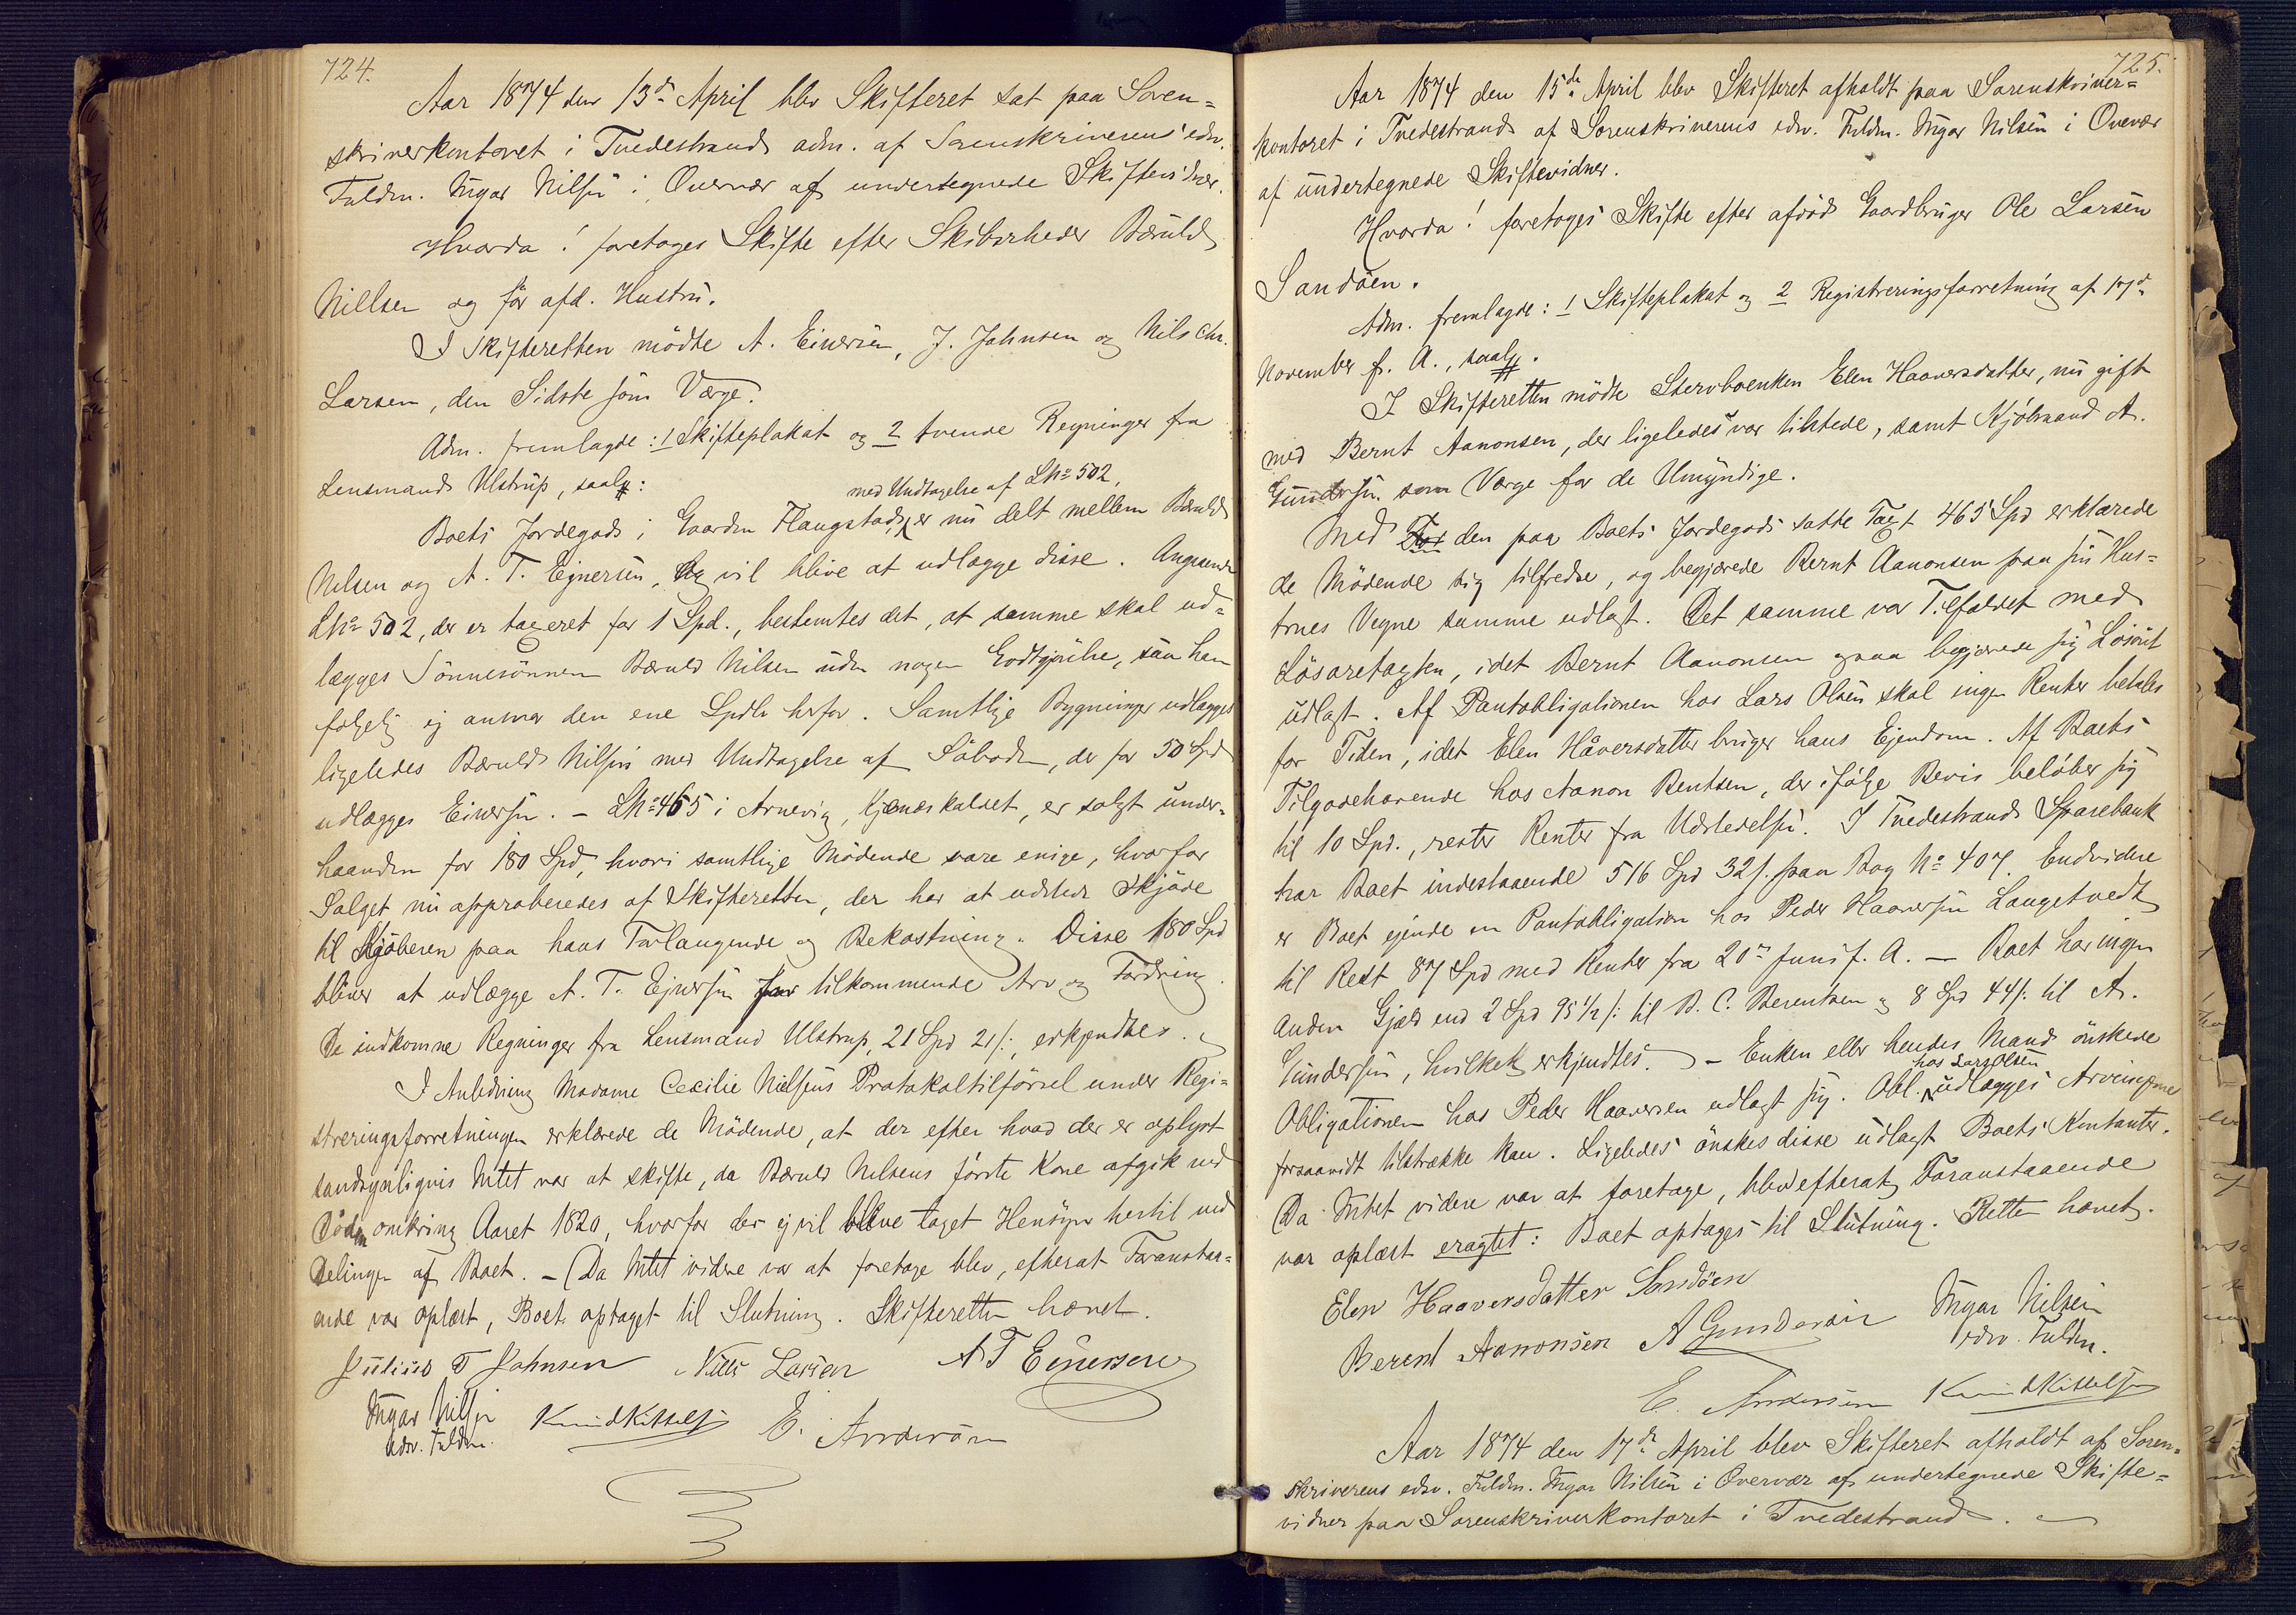 724.
Aar 1874 den 13de April blev Skifteret sat paa Soren-
skriverkontoret i Tvedestrand adm. af Sorenskriverens edsv.
Fuldm. Yngar Nilsen i Overvær af undertegnede Skiftevidner.
Hvorda! foretoges Skifte efter Skibsrheder Børuld
Nillsen og før afd. Hustru.
I Skifteretten mødte A. Einersen, J. Johnsen og Nils Chr.
Larsen, den Sidste som Værge.
Adm. fremlagde: 1 Skifteplakat og 2 tvende Regninger fra
Lensmand Ulstrup, saal#:
med Undtagelse af Lno 502,
Boets Jordegods i Gaarden Flangstad, er nu delt mellem Børuld
Nilsen og A. T. Ejnersen, og vil blive at udlægge disse. Angaaende
Lno 502, der er taxeret for 1 Spd., bestemtes det, at samme skal ud-
lægges Sønnesønnen Børuld Nilsen uden nogen Godtgjørelse, saa han
følgelig ej ansvar den ene Spdlr herfor. Samtlige Bygninger udlægges
ligeledes Børuld Nilsen med Undtagelse af Søboden, der for 50 Spd
udlægges Einersen. - Lno 465 i Arnevig, Kjenneskaldet, er solgt under-
haanden for 180 Spd, hvori samtlige Mødende vare enige, hvorfor
Salget nu approberedes af Skifteretten, der har at udstede Skjøde
til Kjøberen paa hans Forlangende og Bekostning. Disse 180 Spd
bliver at udlægge A. T. Ejnersen for tilkommende Arv og Fordring.
De indkomne Regninger fra Lensmand Ulstrup, 21 Spd 21 /:, erkjendtes.
I Anledning Madame Cecilie Nielsens Protokoltilførsel under Regi-
streringsforretningen erklærede de Mødende, at der efter hvad der er oplyst
sandsynligvis Intet var at skifte, da Børuld Nilsens første Kone afgik ved
Døden omkring Aaret 1820, hvorfor der ej vil blive taget Hensyn hertil ved
Delingen af Boet. - Da Intet videre var at foretage blev, efterat Foranstaa-
ende var oplæst, Boet optaget til Slutning. Skifteretten hævet.
Julius T Johnsen Niels Larsen A T Einersen
Yngar Nilsen Knud Kittelsen E. Andersen
edsv. Fuldm.
725.
Aar 1874 den 15de April blev Skifteret afholdt paa Sorenskriver-
kontoret i Tvedestrand af Sorenskriverens edsv. Fuldm. Yngar Nilsen i Overvær
af undertegnede Skiftevidner.
Hvorda! foretoges Skifte efter afdød Gaardbruger Ole Larsen
Sandøen.
Adm. fremlagde: 1 Skifteplakat og 2 Registreringsforretning af 17de
November f. A., saal#.
I Skifteretten mødte Stervboenken Elen Haaversdatter, nu gift
med Bernt Aanonsen, der ligeledes var tilstede, samt Kjøbmand A.
Gundersen som Værge for de Umyndige.
Med den paa Boets Jordegods satte Taxt 465 Spd erklærede
de Mødende sig tilfredse, og begjærede Bernt Aanonsen paa sin Hus-
trues Vegne samme udlagt. Det samme var Tilfældet med
Løsøretaxten, idet Bernt Aanonsen ogsaa begjærede sig Løsøret
udlagt. Af Pantobligationen hos Lars Olsen skal ingen Renter betales
for Tiden, idet Elen Haaversdatter bruger hans Ejendom. Af Boets
Tilgodehavende hos Aanon Bentsen, der ifølge Bevis beløber sig
til 10 Spd., rester Renter fra Udstedelsen. I Tvedestrand Sparebank
har Boet indestaaende 516 Spd 32 /. paa Bog No 407. Endvidere
er Boet ejende en Pantobligation hos Peder Haaversen Langetvedt
til Rest 87 Spd med Renter fra 20de Juni f. A. - Boet har ingen
anden Gjæld end 2 Spd 95 1/2 /: til B. C. Berentsen og 8 Spd 44 /: til A.
Gundersen, hvilket erkjendtes. - Enken eller hendes Mand ønskede
hos Lars Olsen
Obligationen hos Peder Haaversen udlagt sig. Obl. udlægges Arvingerne
forsaavidt tilstrække kan. Ligeledes ønskes disse udlagt Boets Kontanter.
Da Intet videre var at foretage, blev efterat Foranstaaende
var oplæst eragtet: Boet optages til Slutning. Retten hævet.
Elen Haaversdatter Sandøen
Yngar Nilsen
Berent Aanonsen A Gundersen edsv. Fuldm.
E. Andersen Knud Kittelsen
Aar 1874 den 17de April blev Skifteret afholdt af Soren-
skriverens edsv. Fuldm. Yngar Nilsen i Overvær af undertegnede Skifte-
vidner paa Sorenskriverkontoret i Tvedestrand.